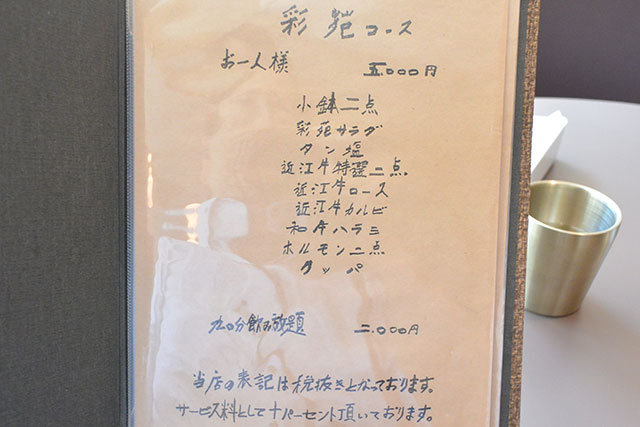 彩苑コース
お一人様 五.000円
小鉢二点
彩苑サラダ
タン塩
近江牛特選二点
近江牛ロース
近江牛カルビ
和牛ハラミ
ホルモン二点
クッパ
九0分飲み放題 二.000円
当店の表記は税抜きとなっております。
サービス料として十パーセント頂いております。